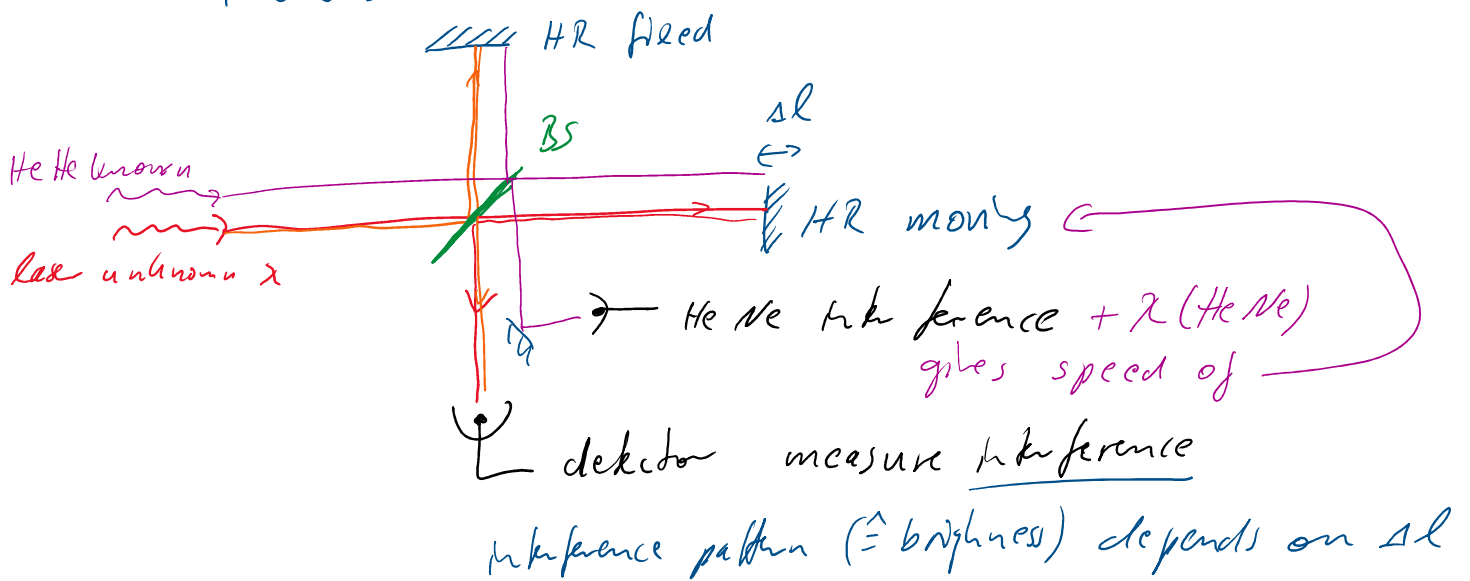 HR fixed
Δl
BS
HeHe known
HR moving
laser unknown λ
HeNe interference + λ(HeNe)
gives speed of
detektor measure interference
interference pattern (≙ brighness) depends on Δl